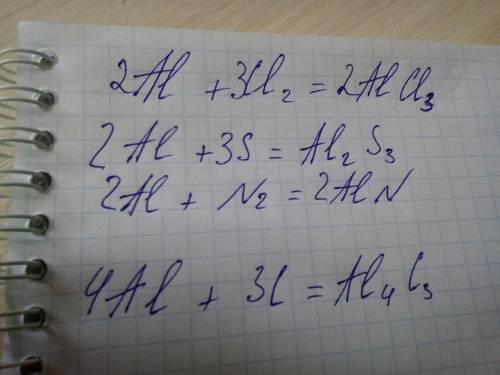 2Al + 3Cl₂ = 2AlCl₃
2Al + 3S = Al₂S₃
2Al + N₂ = 2AlN
4Al + 3C = Al₄C₃